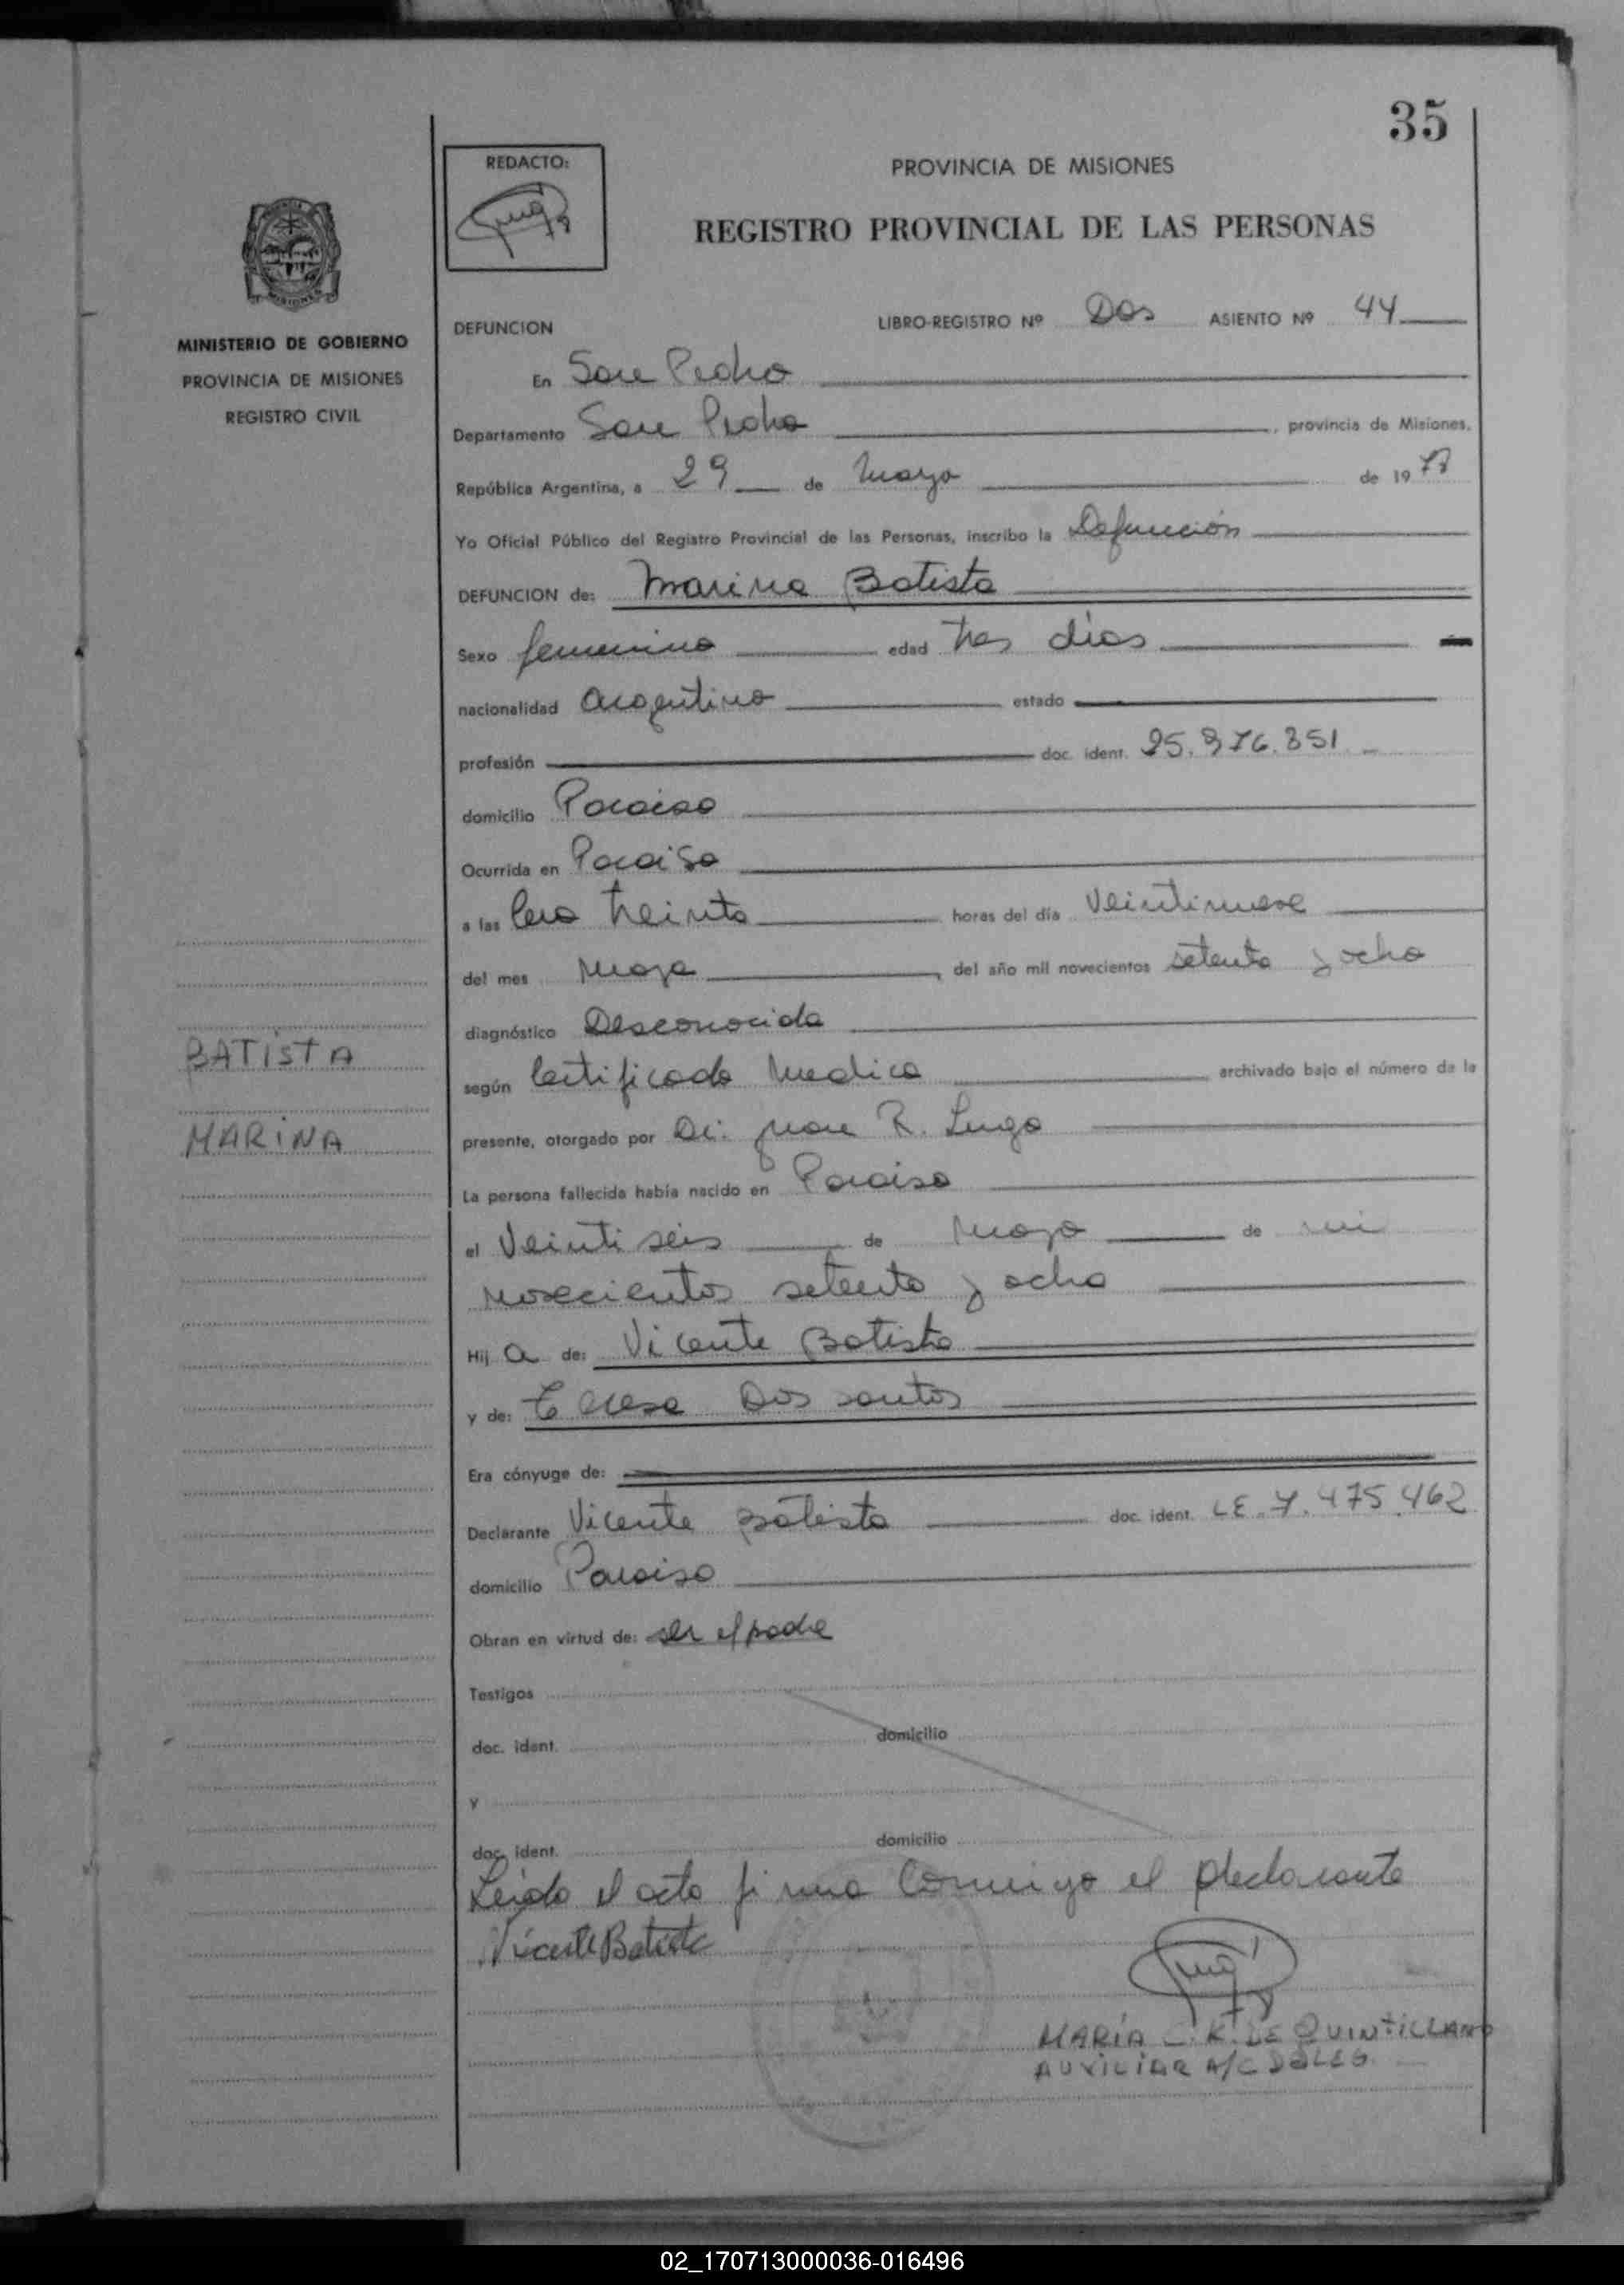 35
REDACTO:
PROVINCIA DE MISIONES
REGISTRO PROVINCIAL DE LAS PERSONAS
MISIONES
MINISTERIO DE GOBIERNO
PROVINCIA DE MISIONES
REGISTRO CIVIL
DEFUNCION LIBRO-REGISTRO Nº Dos ASIENTO Nº 44
En San Pedro
Departamento San Pedro, provincia de Misiones.
República Argentina, a 29 de Mayo de 1978
Yo Oficial Público del Registro Provincial de las Personas, inscribo la Defunción
DEFUNCION de: Marina Batista
Sexo femenino edad tres días
nacionalidad Argentina estado
profesión doc. ident. 25.876.851
domicilio Paraiso
Ocurrida en Paraiso
a las Cero treinta horas del día Veintinueve
del mes Mayo, del año mil novecientos setenta y ocho
diagnóstico Desconocida
según Certificado Medico archivado bajo el número de la
presente, otorgado por Dr. Juan R. Lugo
La persona fallecida había nacido en Paraiso
el Veintiseis de Mayo de mil
novecientos setenta y ocho
Hij a de: Vicente Batista
y de: Teresa Dos santos
Era cónyuge de:
Declarante Vicente Batista doc. ident. LE. 7.475.462
domicilio Paraiso
Obran en virtud de: ser el padre
Testigos
doc. ident. domicilio
y
doc. ident. domicilio
Leida el acta firma Conmigo el declarante
Vicente Batista
MARIA C. K. DE QUINTILLANO
AUXILIAR A/C DELEG.
BATISTA
MARINA
02_170713000036-016496